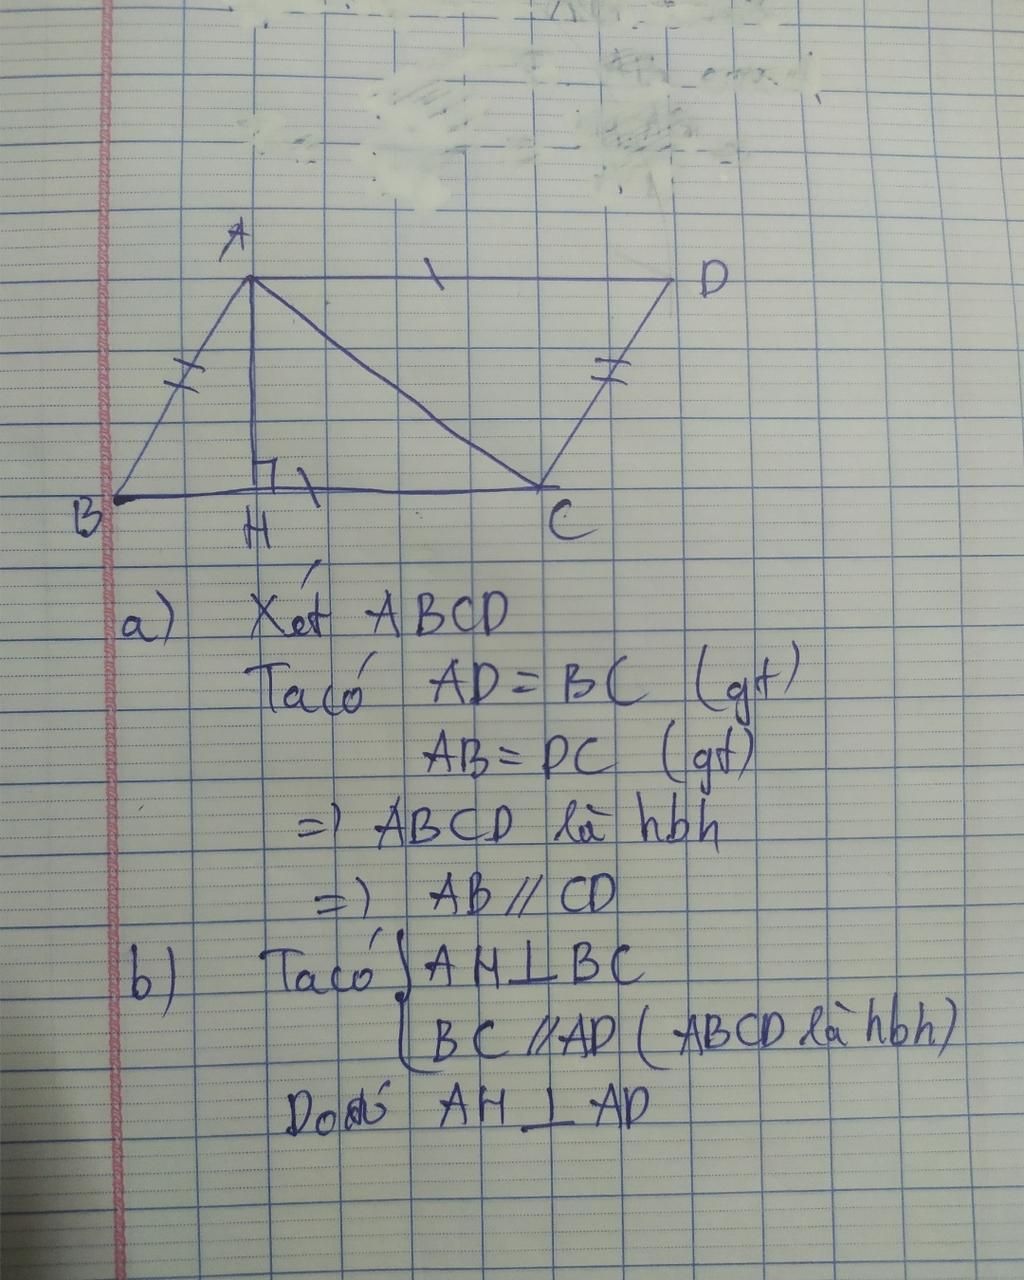 A
D
B
H
C
a) Xét ABCD
Ta có AD = BC (gt)
AB = DC (gt)
=) ABCD là hbh
=) AB // CD
b) Ta có { AH ⊥ BC
BC // AD (ABCD là hbh)
Do đó AH ⊥ AD